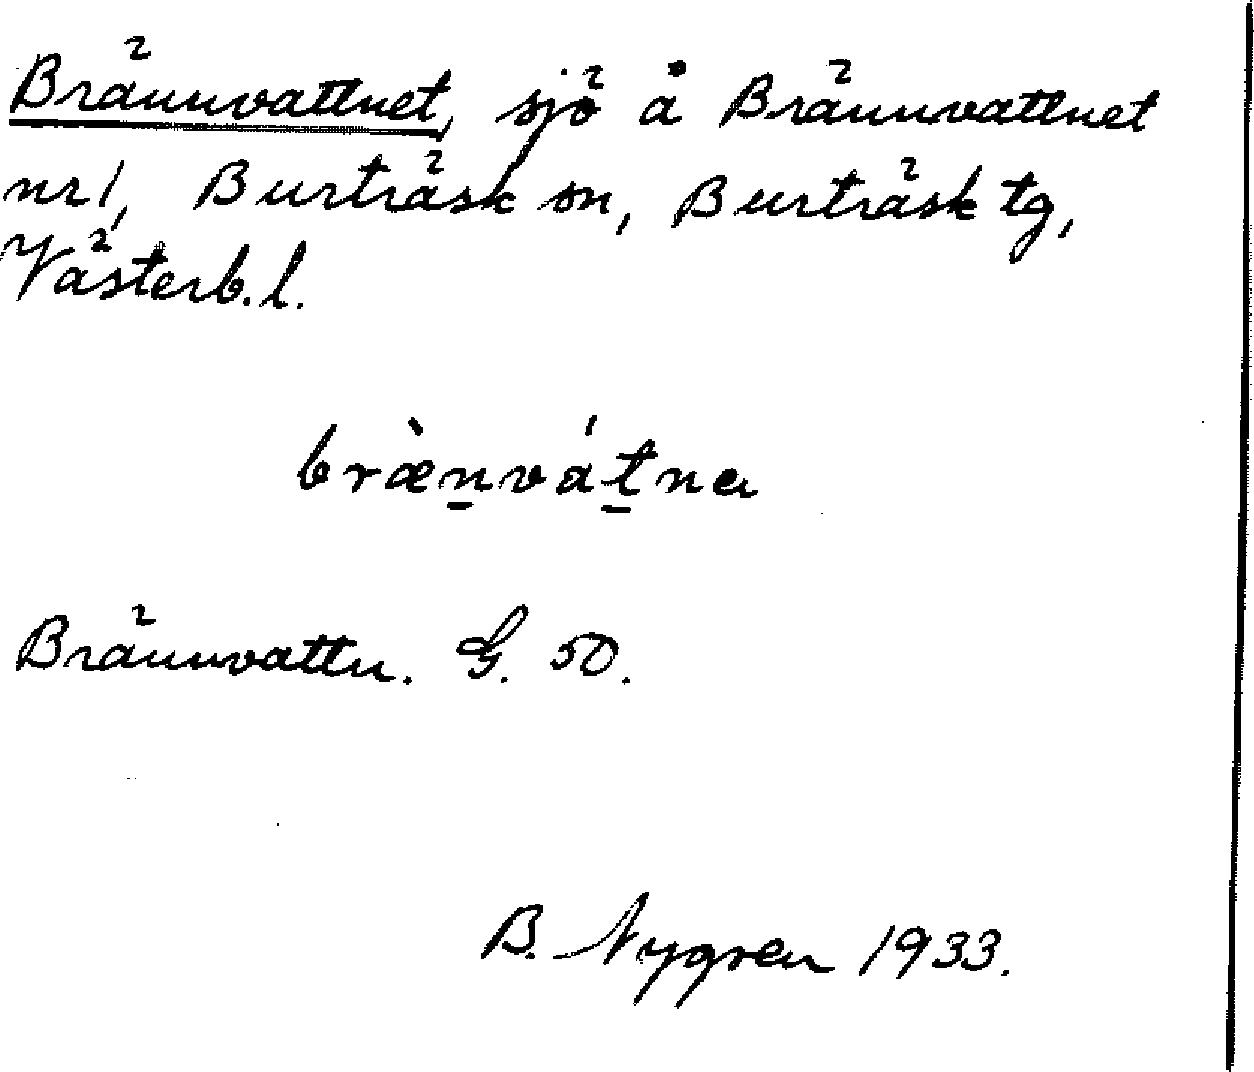 Brännvattnet, sjö å Brännvattnet
nr 1, Burträsk sn, Burträsk tg,
Västerb. l.
bræ̀n̲vát̲na
Brännvattn. G. 50.
B. Nygren 1933.